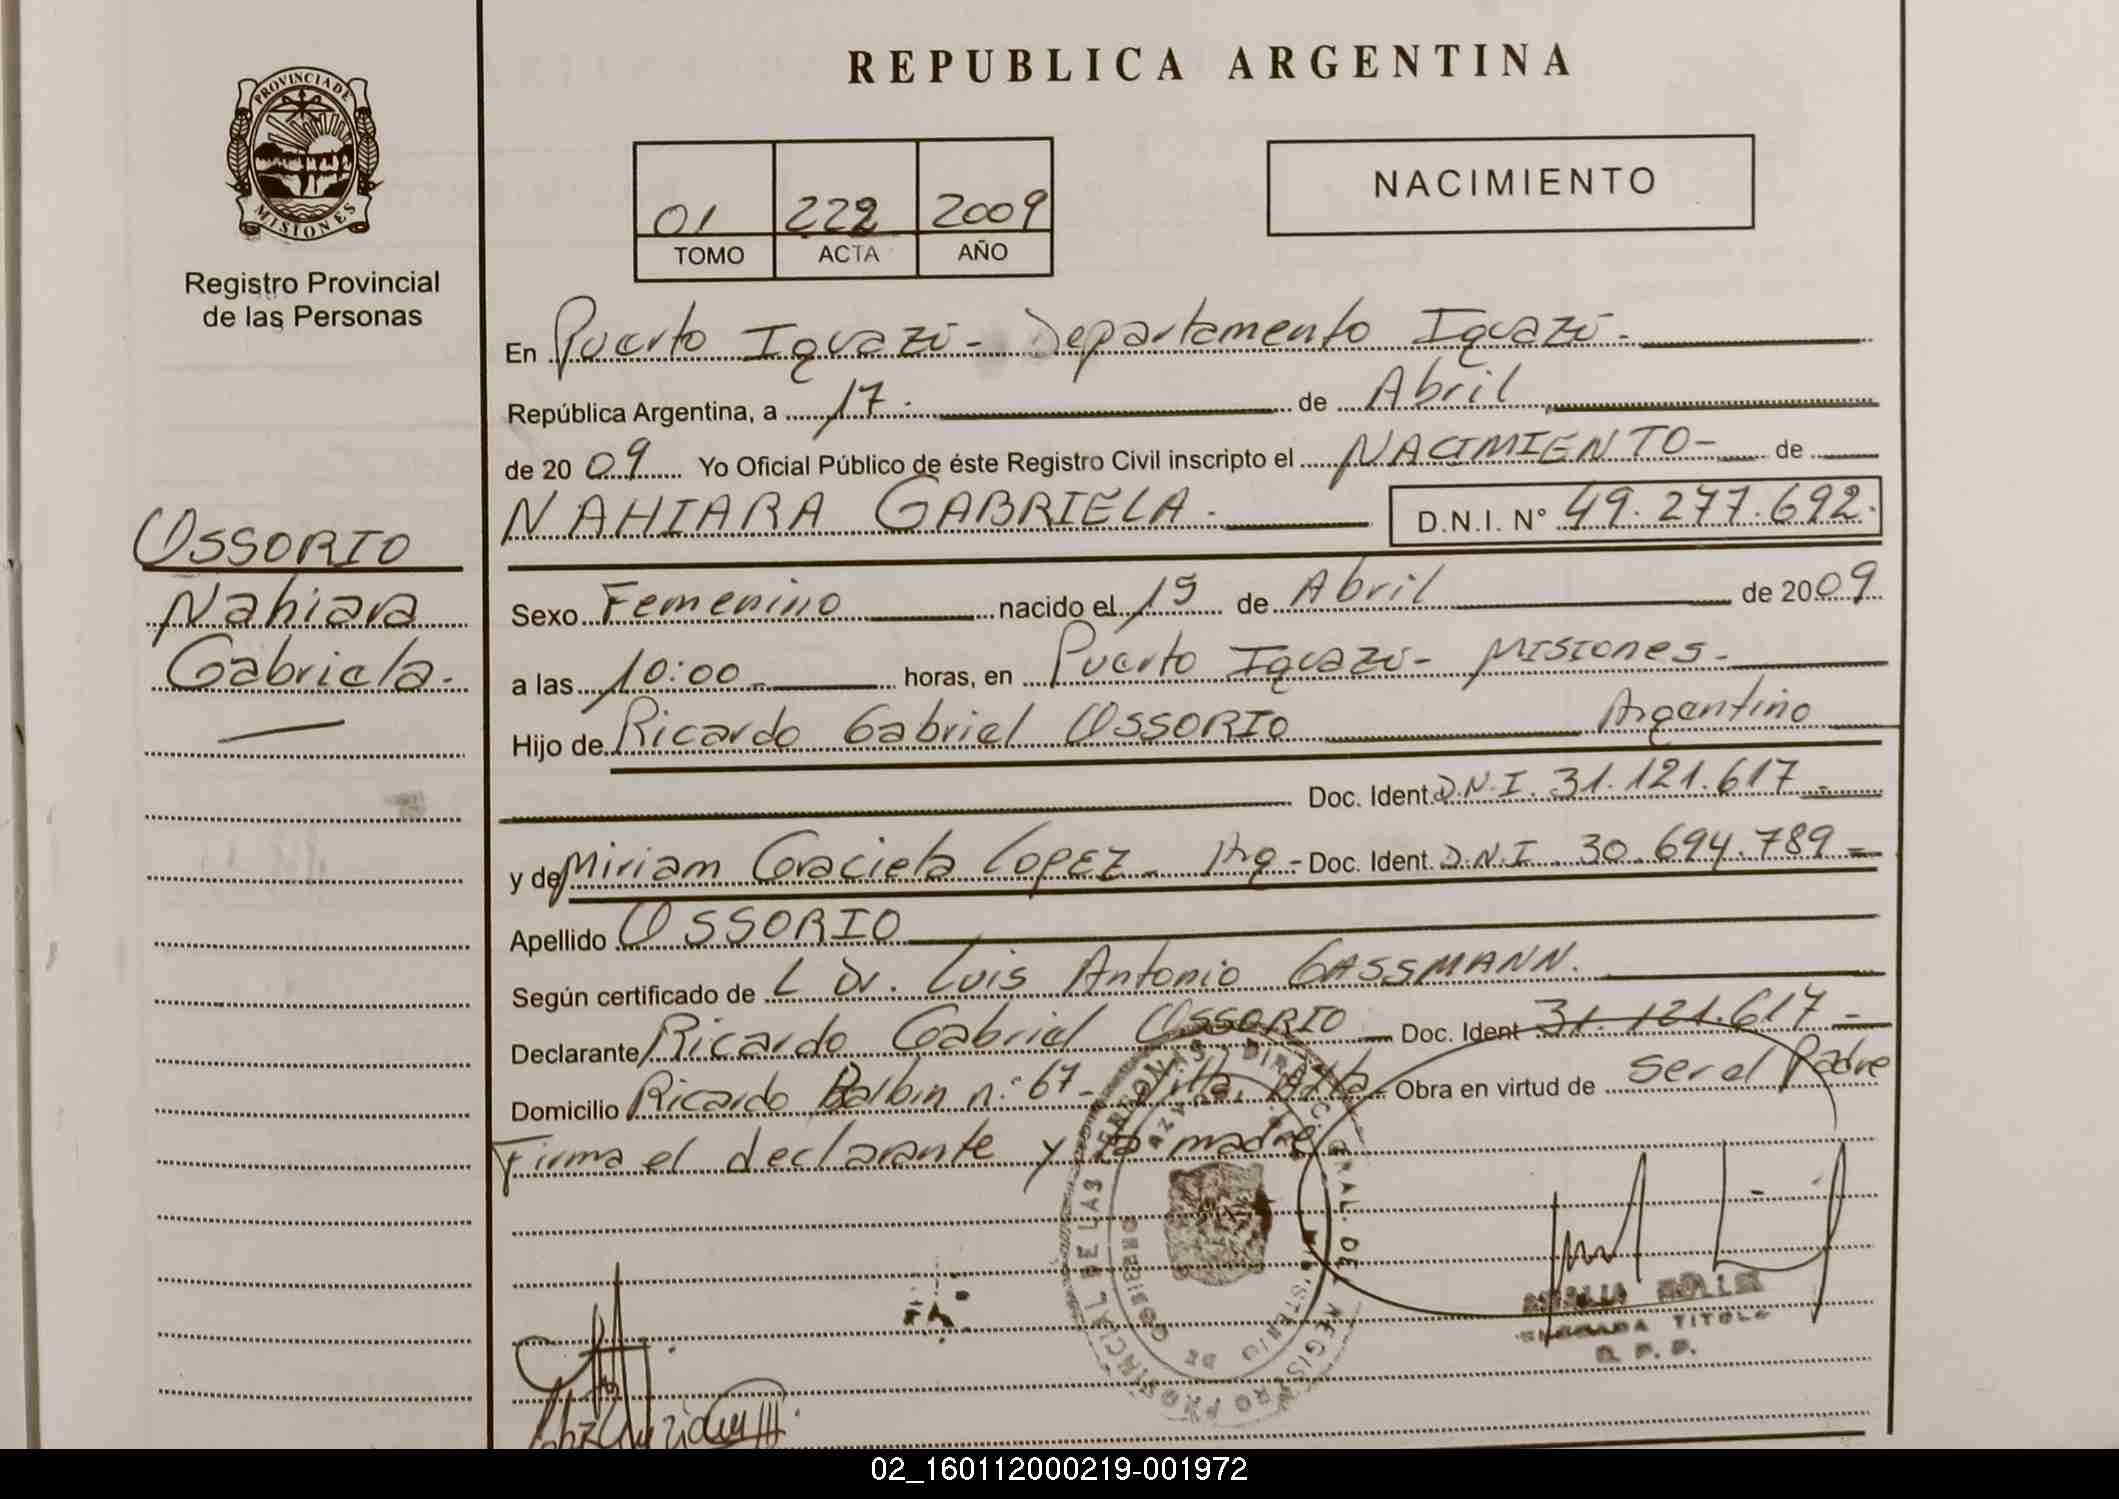 REPUBLICA ARGENTINA
PROVINCIA DE
MISIONES
Registro Provincial
de las Personas
01 222 2009
TOMO ACTA AÑO
NACIMIENTO
En Puerto Iguazú - Departamento Iguazú -
República Argentina, a 17. de Abril
de 20 09 Yo Oficial Público de éste Registro Civil inscripto el NACIMIENTO - de
NAHIARA GABRIELA. D.N.I. N° 49.277.692.
OSSORIO
Nahiara
Gabriela.
Sexo Femenino nacido el 15 de Abril de 2009
a las 10:00 horas, en Puerto Iguazú - Misiones -
Hijo de Ricardo Gabriel OSSORIO Argentino
Doc. Ident. D.N.I. 31.121.617 -
y de Miriam Graciela Lopez - Arg - Doc. Ident. D.N.I. 30.694.789 =
Apellido OSSORIO
Según certificado de L Dr. Luis Antonio GASSMANN.
Declarante Ricardo Gabriel OSSORIO - Doc. Ident 31.121.617 -
Domicilio Ricardo Balbin n: 67 - Villa Alta - Obra en virtud de ser el Padre
Firma el declarante y la madre
REGISTRO PROVINCIAL DE LAS PERSONAS
TITULO
02_160112000219-001972